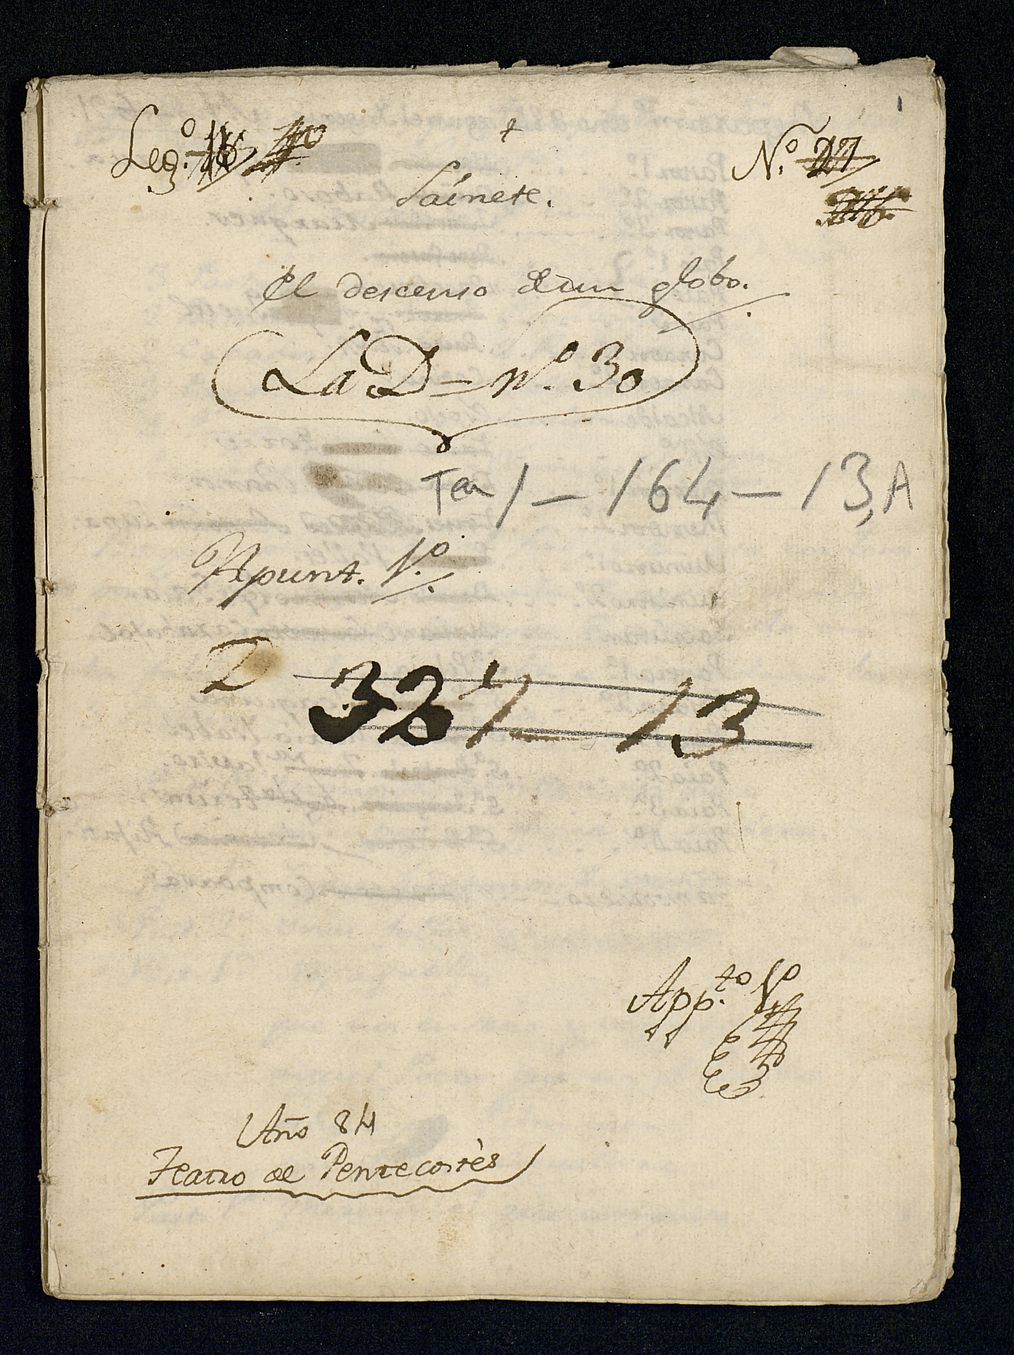 1
Leg.º
Nº 27
+
Sainete.
El descenso de un globo.
La D = nº. 30
Tea 1-164-13, A
Apunt. 1.º
2
32 1/- 13
App.to 1º
Año 84
Teatro de Pentecostès